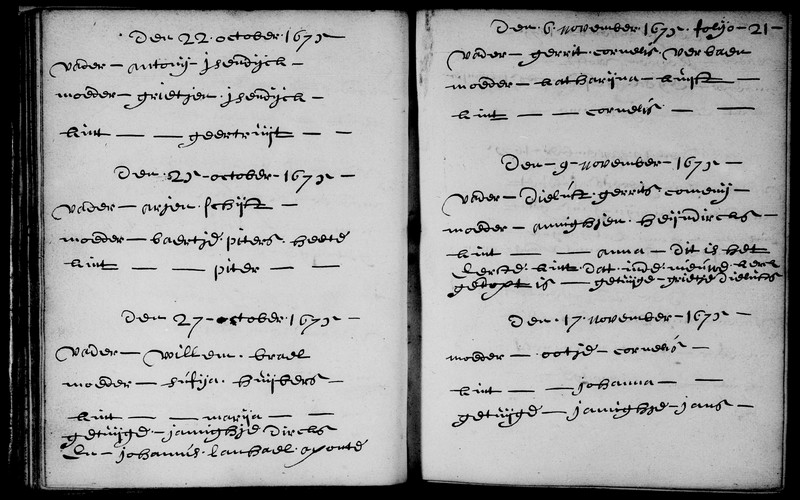 Den 22 october 1671 —
vader — antonij isendijck —
moeder — grietjen isendijck —
kint — — geertruijt — —
Den 25 — october — 1671 —
vader — arjen schijft —
moeder — baertje piters heete
kint — — piter — —
Den 27 — october 1671 —
vader — willem brael
moeder — sufija huijbers —
kint — — marija — —
getuijge — jannighje dircks
En — johannis
Den 6 november 1671 folyo — 21 —
vader — gerrit cornelis verbaen
moeder — katharijna — kuijft —
kint — — cornelis — —
Den — 9 — november — 1671 —
vader — dieluft gerrits comenij —
moeder — annighjen heijndircks —
kint — — anna — dit is het
Eerste kint dat inde nieuwe kerck
gedoopt is — getuijge — grietje dielufts
Den 17 november — 1671 —
moeder — ootje — cornelis —
kint — — johanna — —
getuijge — jannighje — jans —